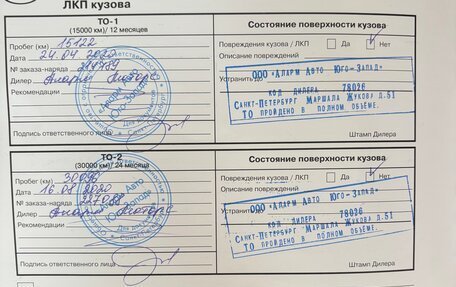 ЛКП кузова
ТО-1
(15000 км)/ 12 месяцев
Состояние поверхности кузова
Пробег (км) 15122
Повреждения кузова / ЛКП Да Нет
Дата 24.04.2020
Описание повреждений
№ заказа-наряда
Дилер Моторс
Устранить до
Рекомендации
ООО «Аларм Авто Юго-Запад»
КОД ДИЛЕРА 78026
Санкт-Петербург Маршала Жукова д.51
ТО ПРОЙДЕНО В ПОЛНОМ ОБЪЕМЕ.
Подпись ответственного лица
Штамп Дилера
ТО-2
(30000 км)/ 24 месяца
Состояние поверхности кузова
Пробег (км) 30096
Повреждения кузова / ЛКП Да Нет
Дата 16.08.2020
Описание повреждений
№ заказа-наряда 227088
Дилер Моторс
Устранить
Рекомендации
ООО «Аларм Авто Юго-Запад»
КОД ДИЛЕРА 78026
Санкт-Петербург Маршала Жукова д.51
ТО ПРОЙДЕНО В ПОЛНОМ ОБЪЕМЕ.
Подпись ответственного лица
Штамп Дилера